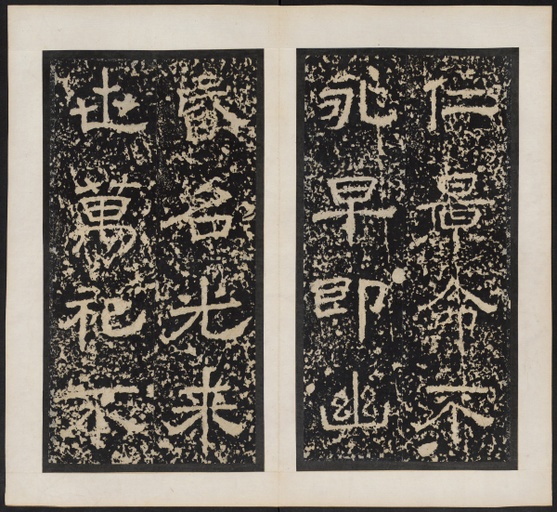 仁命不
永早即幽
昬名光来
世萬祀不